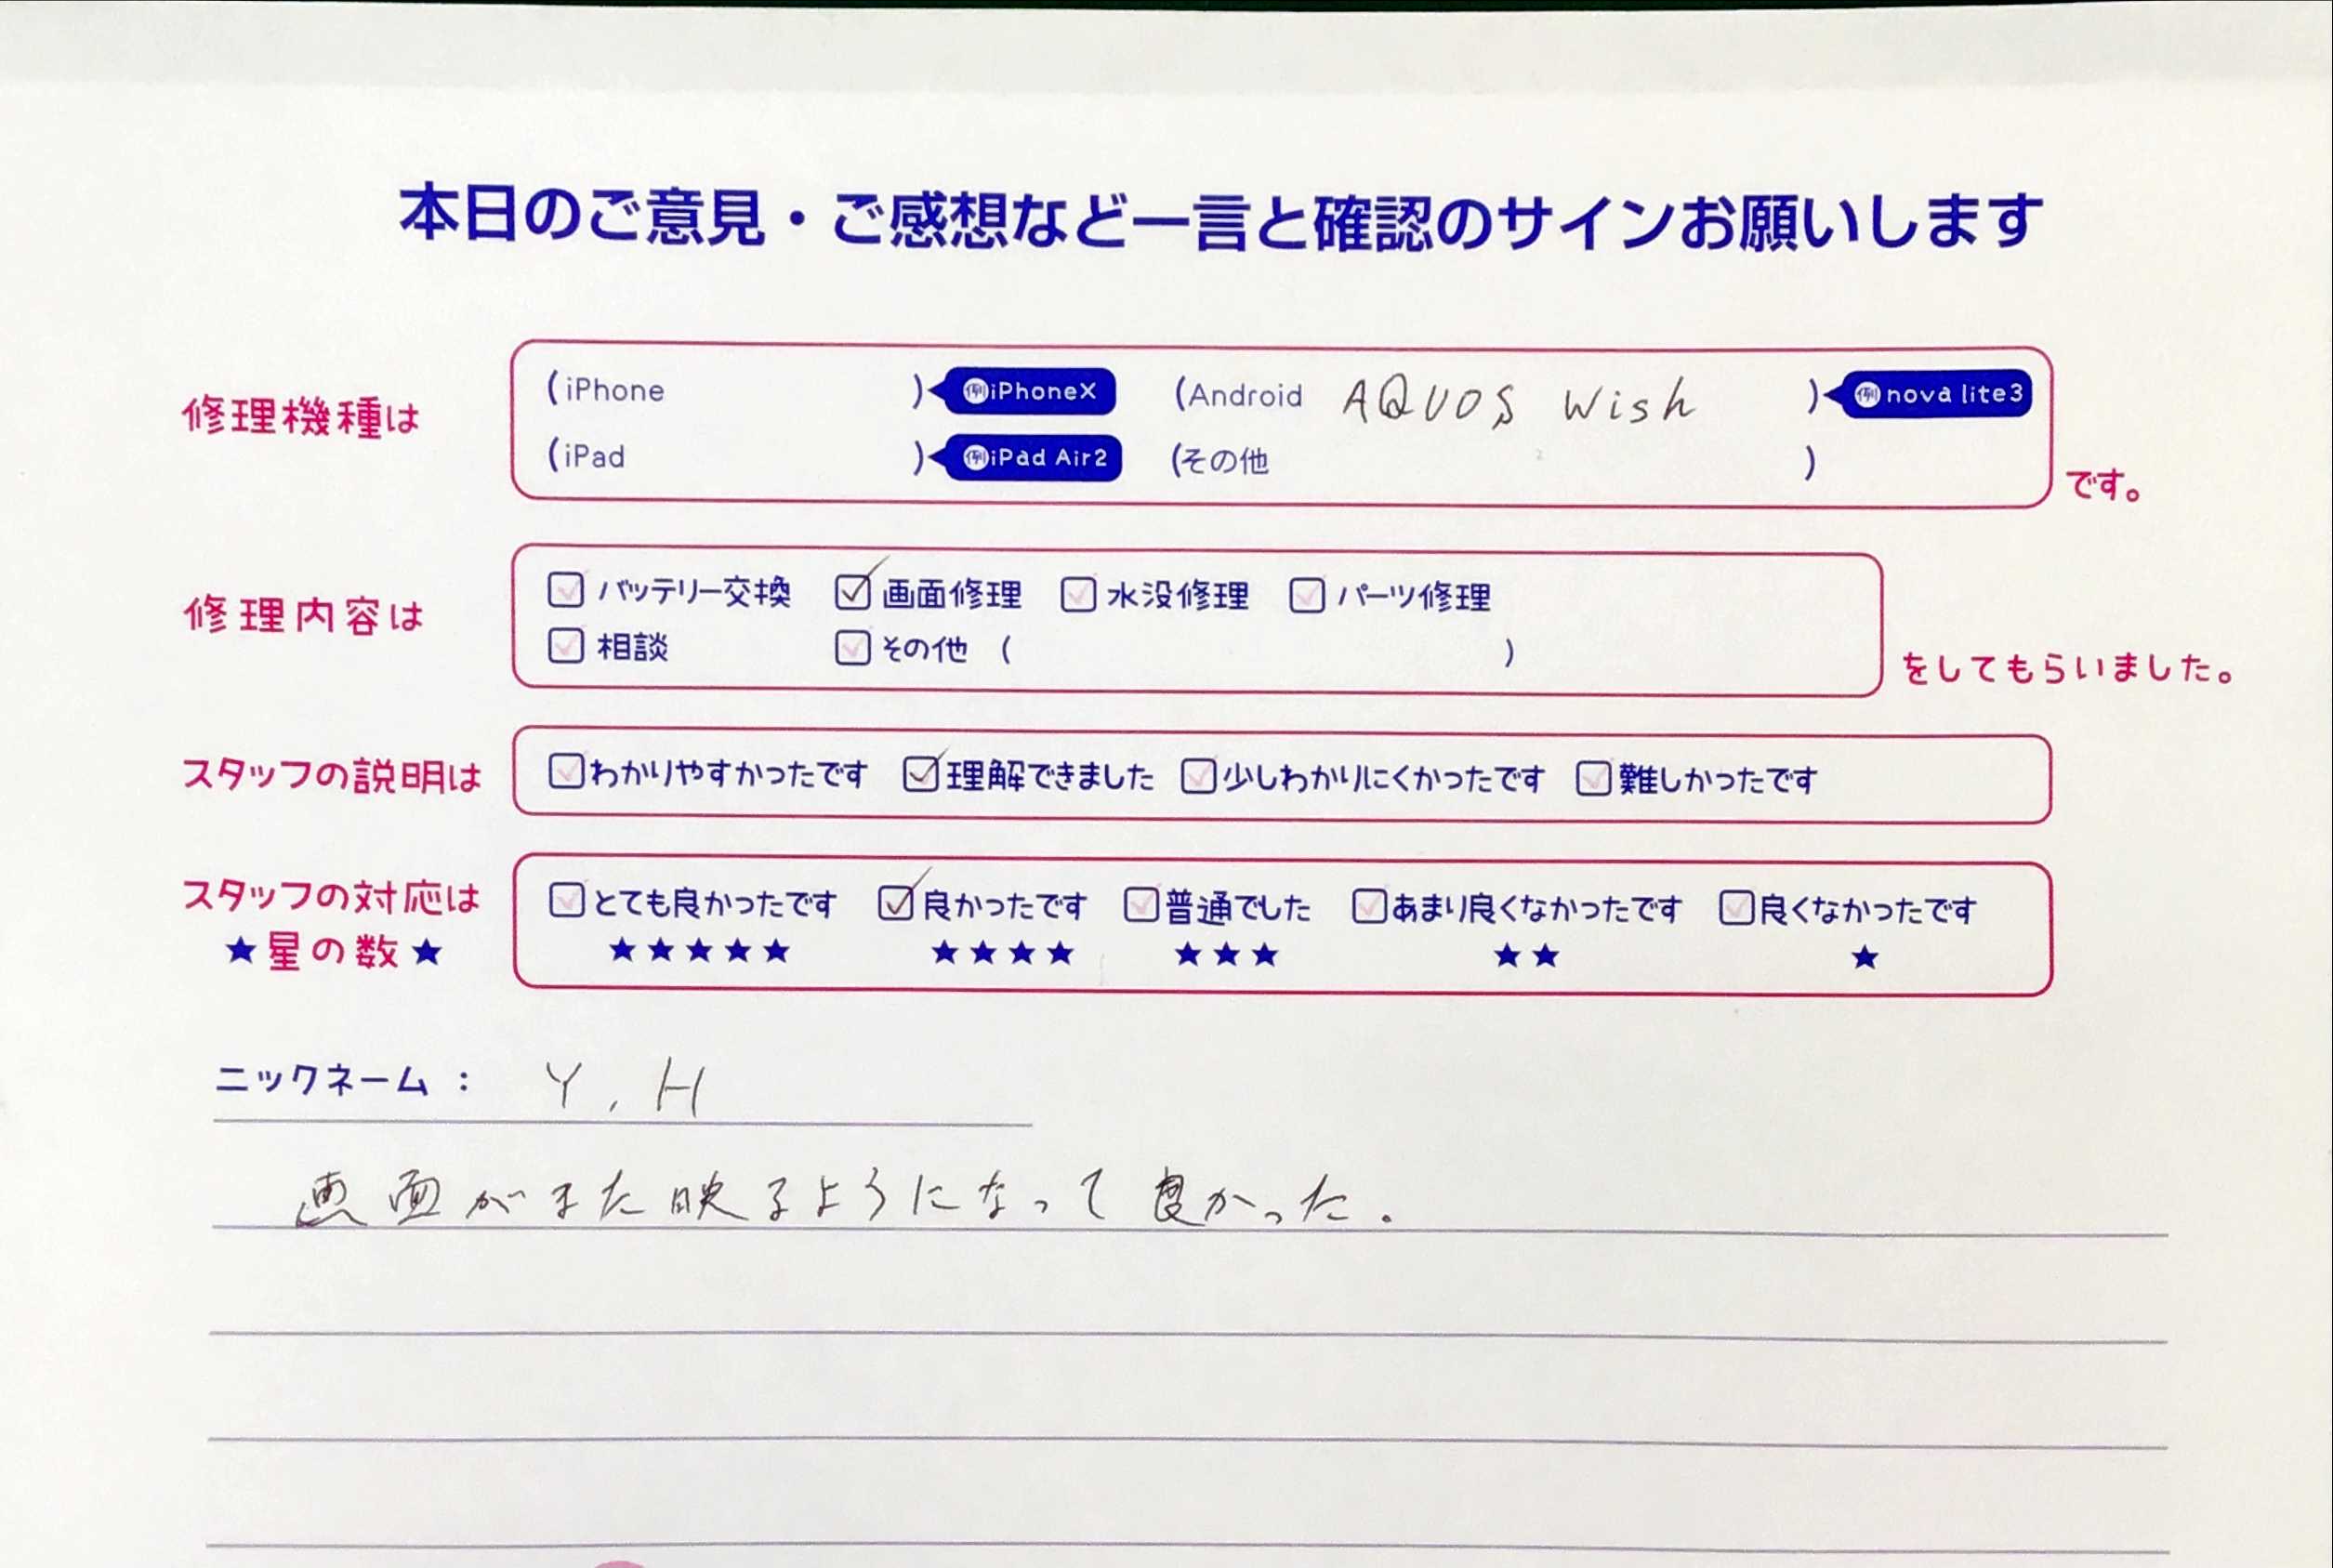 本日のご意見・ご感想など一言と確認のサインお願いします
修理機種は (iPhone ) 例iPhoneX (Android AQUOS wish ) 例nova lite3
(iPad ) 例iPad Air2 (その他 ) です。
修理内容は ☐バッテリー交換 ☑画面修理 ☐水没修理 ☐パーツ修理
☐相談 ☐その他 ( ) をしてもらいました。
スタッフの説明は ☐わかりやすかったです ☑理解できました ☐少しわかりにくかったです ☐難しかったです
スタッフの対応は ☐とても良かったです ☑良かったです ☐普通でした ☐あまり良くなかったです ☐良くなかったです
★星の数★ ★★★★★ ★★★★ ★★★ ★★ ★
ニックネーム： Y.H
画面がまた映るようになって良かった.